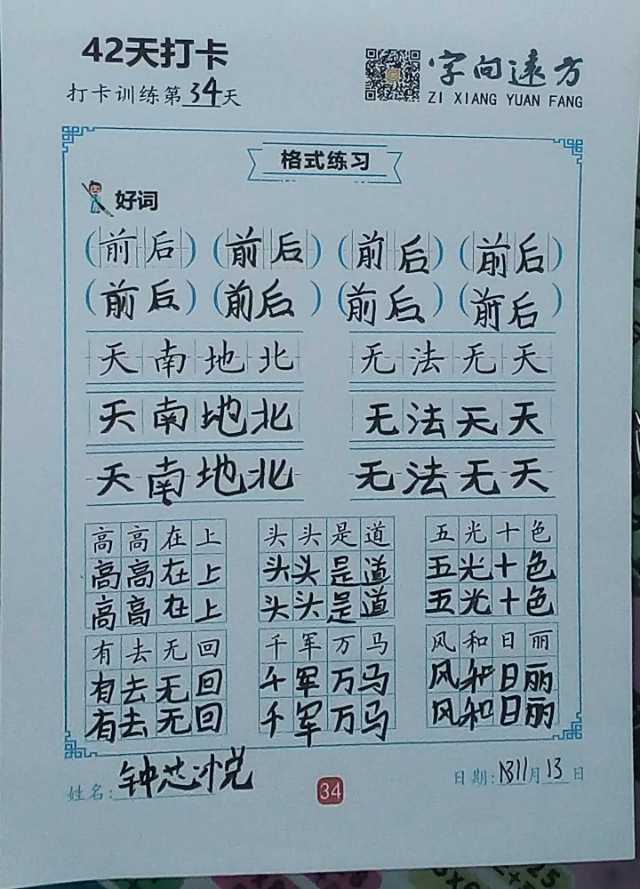 42天打卡
打卡训练第34天
字向远方
ZI XIANG YUAN FANG
格式练习
好词
(前后) (前后) (前后) (前后)
(前后) (前后) (前后) (前后)
天南地北 无法无天
天南地北 无法天天
天南地北 无法无天
高高在上 头头是道 五光十色
高高在上 头头是道 五光十色
高高在上 头头是道 五光十色
有去无回 千军万马 风和日丽
有去无回 千军万马 风和日丽
有去无回 千军万马 风和日丽
姓名: 钟芯悦 34 日期: 11月13日